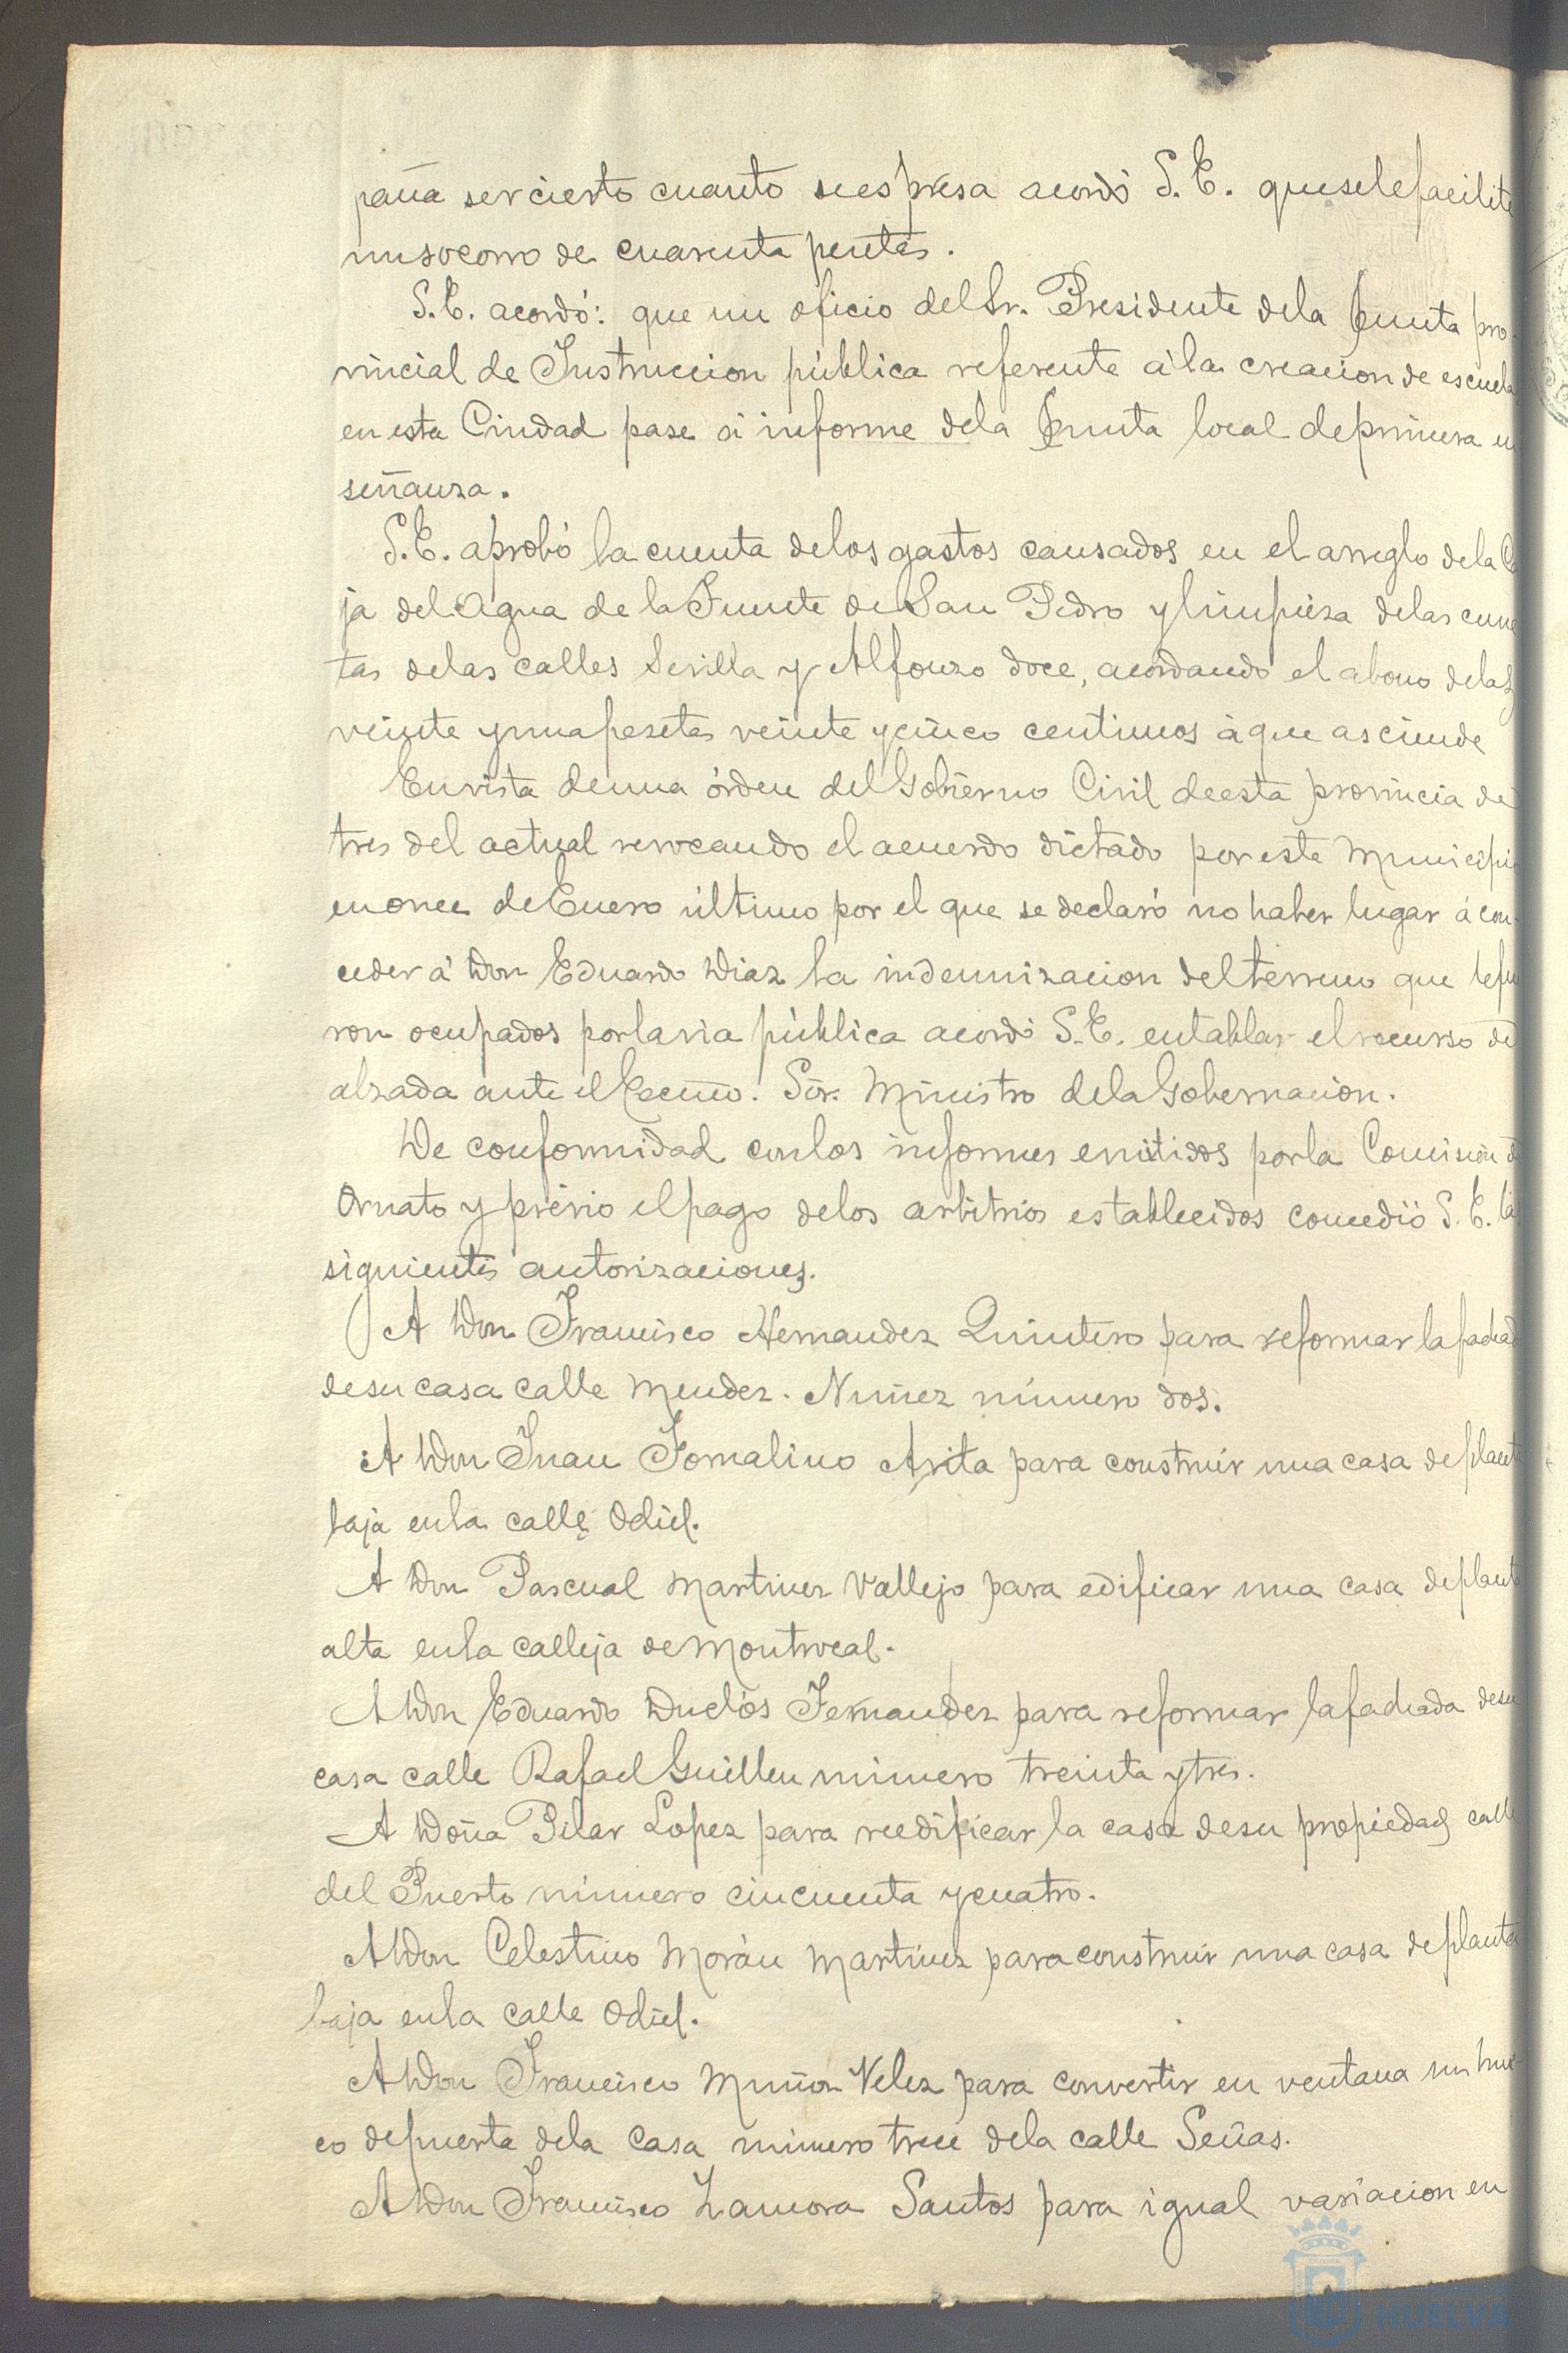 paña ser cierto cuanto se espresa acordó S. E. que se le facilite
un socorro de cuarenta pesetas.
S. E. acordó: que un oficio del Sr. Presidente de la Junta pro-
vincial de Instruccion pública referente á la creacion de escuela
en esta Ciudad pase á informe de la Junta local de primera en
señanza.
S. E. aprobó la cuenta de los gastos causados en el arreglo de la Ca
ja del Agua de la Fuente de San Pedro y limpieza de las cune
tas de las calles Sevilla y Alfonso doce, acordando el abono de las
veinte y una pesetas veinte y cinco centimos á que asciende
En vista de una órden del Gobierno Civil de esta provincia de
tres del actual revocando el acuerdo dictado por este Municipio
en once de Enero último por el que se declaró no haber lugar á con-
ceder á Don Eduardo Diaz la indemnizacion del terreno que le fue
ron ocupados por la via pública acordó S. E. entablar el recurso de
alzada ante el Excmo. Sor. Ministro de la Gobernacion.
De conformidad con los informes emitidos por la Comision de
Ornato y prévio el pago de los arbitrios establecidos concedió S. E. las
siguientes autorizaciones.
A Don Francisco Hernandez Quintero para reformar la fachad
de su casa calle Mendez-Nuñez número dos.
A Don Juan Fornalino Arita para construir una casa de planta
baja en la calle Odiel.
A Don Pascual Martinez Vallejo para edificar una casa de planta
alta en la calleja de Montrocal.
A Don Eduardo Duclós Fernandez para reformar la fachada de su
casa calle Rafael Guillen número treinta y tres.
A Doña Pilar Lopez para reedificar la casa de su propiedad calle
del Puerto número cincuenta y cuatro.
A Don Celestino Morán Martinez para construir una casa de planta
baja en la calle Odiel.
A Don Francisco Muñoz Velez para convertir en ventana un hue-
co de puerta de la casa número trece de la calle Señas.
A Don Francisco Zamora Santos para igual variacion en
HUELVA